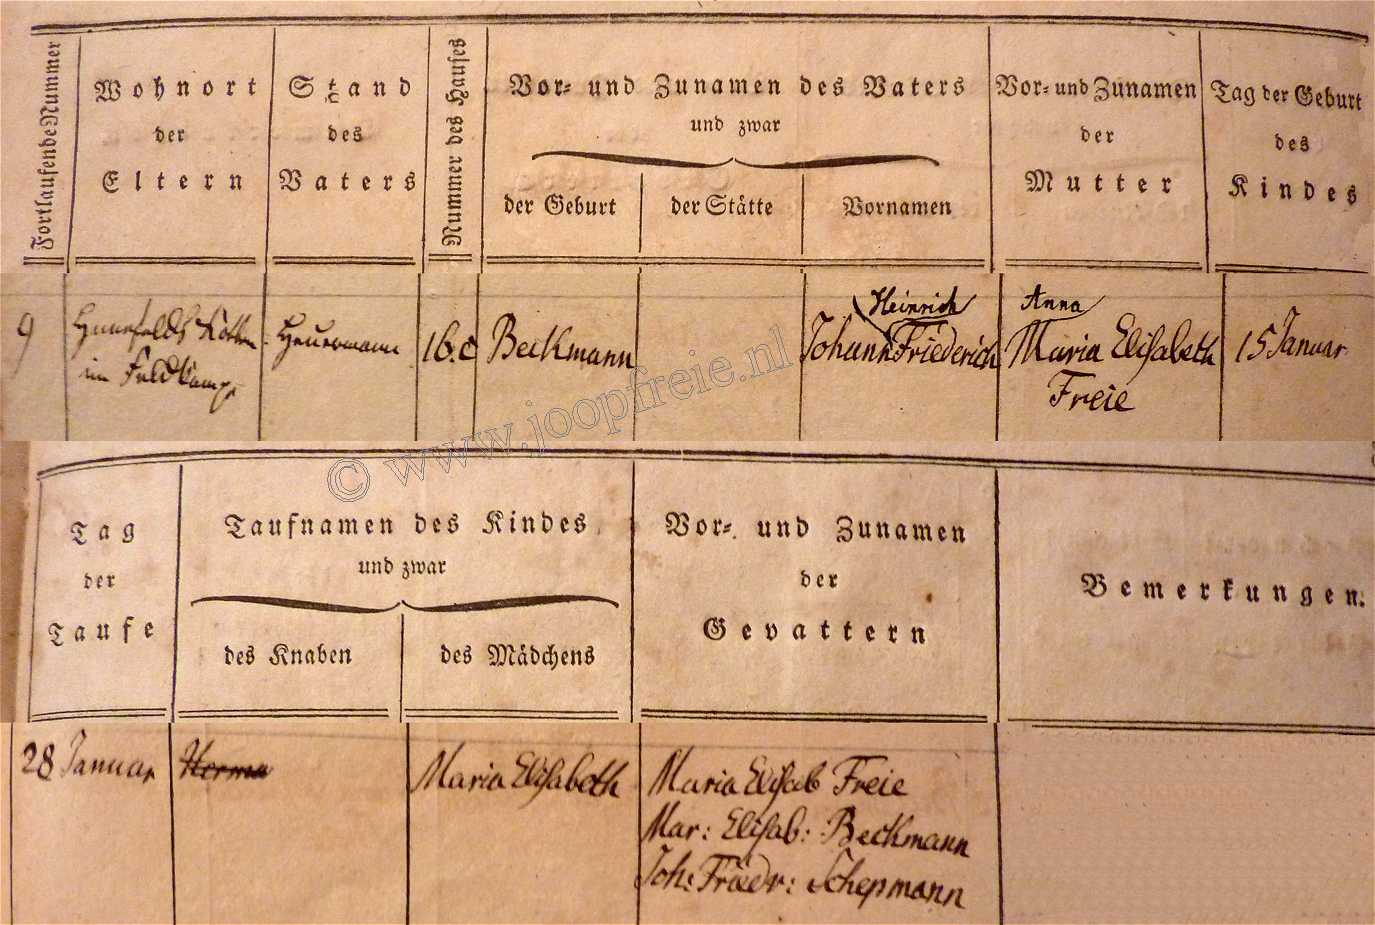 Fortlaufende Nummer
Wohnort
der
Eltern
Stand
des
Vaters
Nummer des Hauses
Vor- und Zunamen des Vaters
und zwar
der Geburt
der Stätte
Vornamen
Vor- und Zunamen
der
Mutter
Tag der Geburt
des
Kindes
9
im Feldkampe
Heuermann
16.c
Beckmann
Heinrich
Johann Friederich
Anna
Maria Elisabeth
Freie
15 Januar
© www.joopfreie.nl
Tag
der
Taufe
Taufnamen des Kindes
und zwar
des Knaben
des Mädchens
Vor- und Zunamen
der
Gevattern
Bemerkungen.
28 Januar
Herma
Maria Elisabeth
Maria Elisab Freie
Mar: Elisab: Beckmann
Joh: Friedr: Schepmann